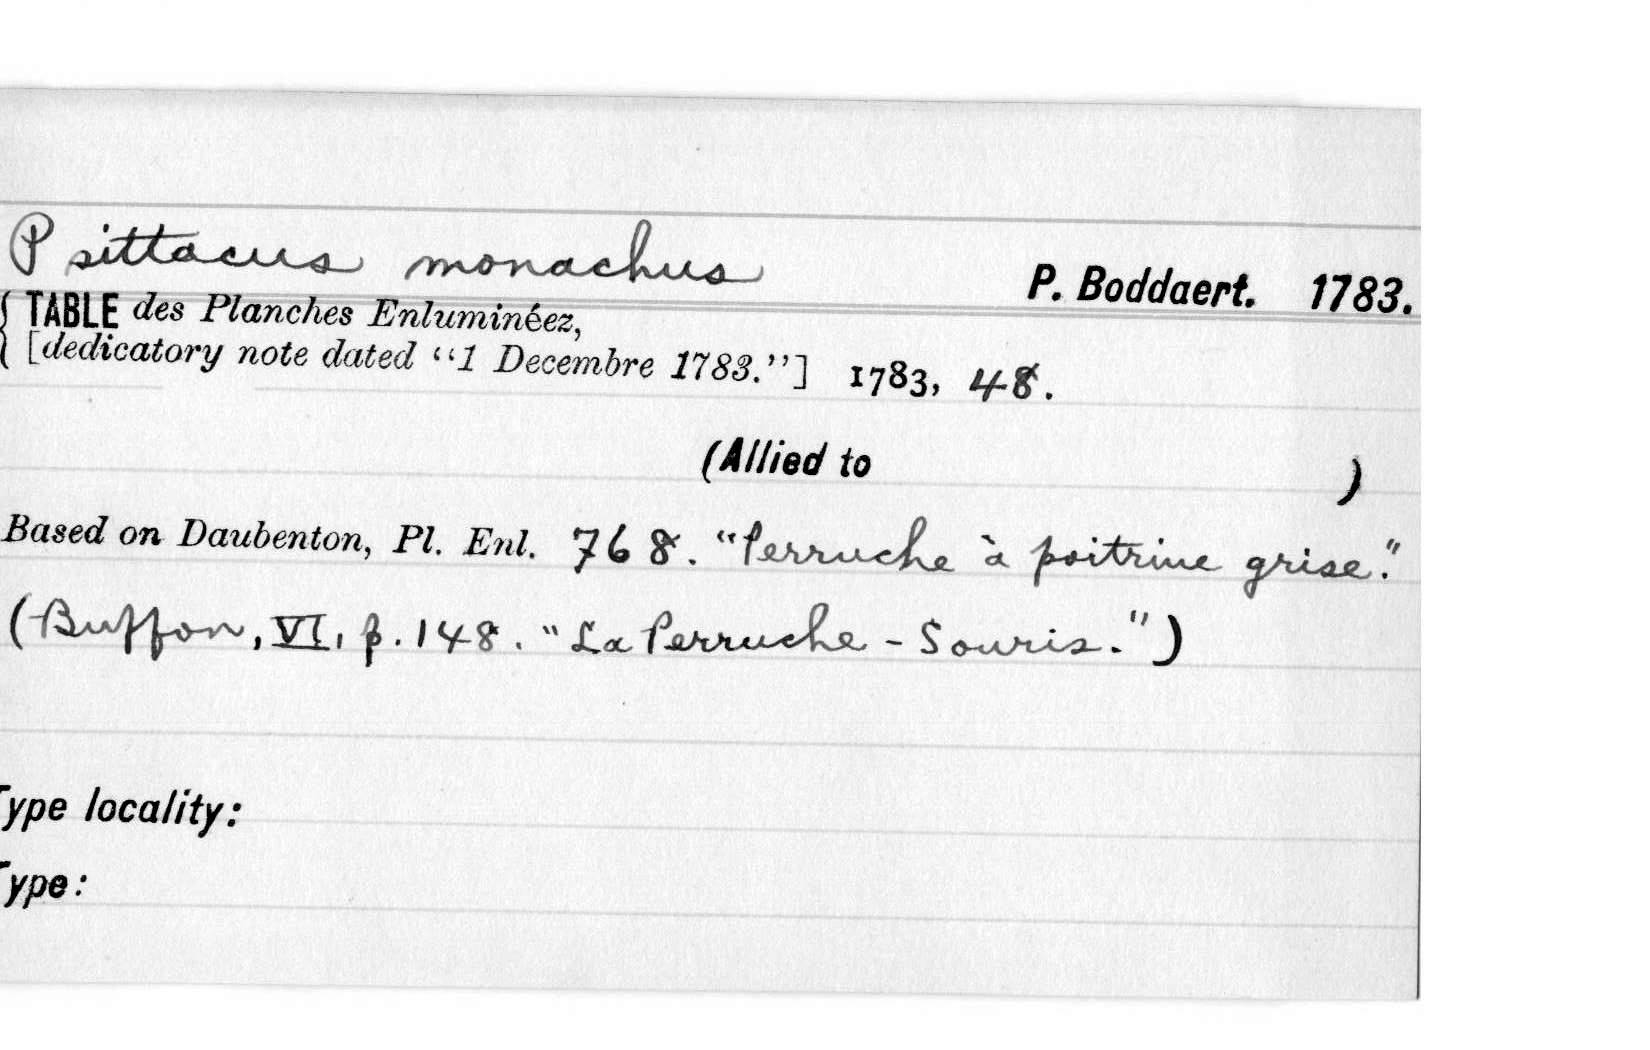 Psittacus monachus P. Boddaert. 1783.
{ TABLE des Planches Enluminéez,
[dedicatory note dated “1 Decembre 1783.”] 1783, 48.
(Allied to )
Based on Daubenton, Pl. Enl. 768. “Perruche à poitrine grise.”
(Buffon, VI, p. 148. “La Perruche - Souris.”)
Type locality:
Type: